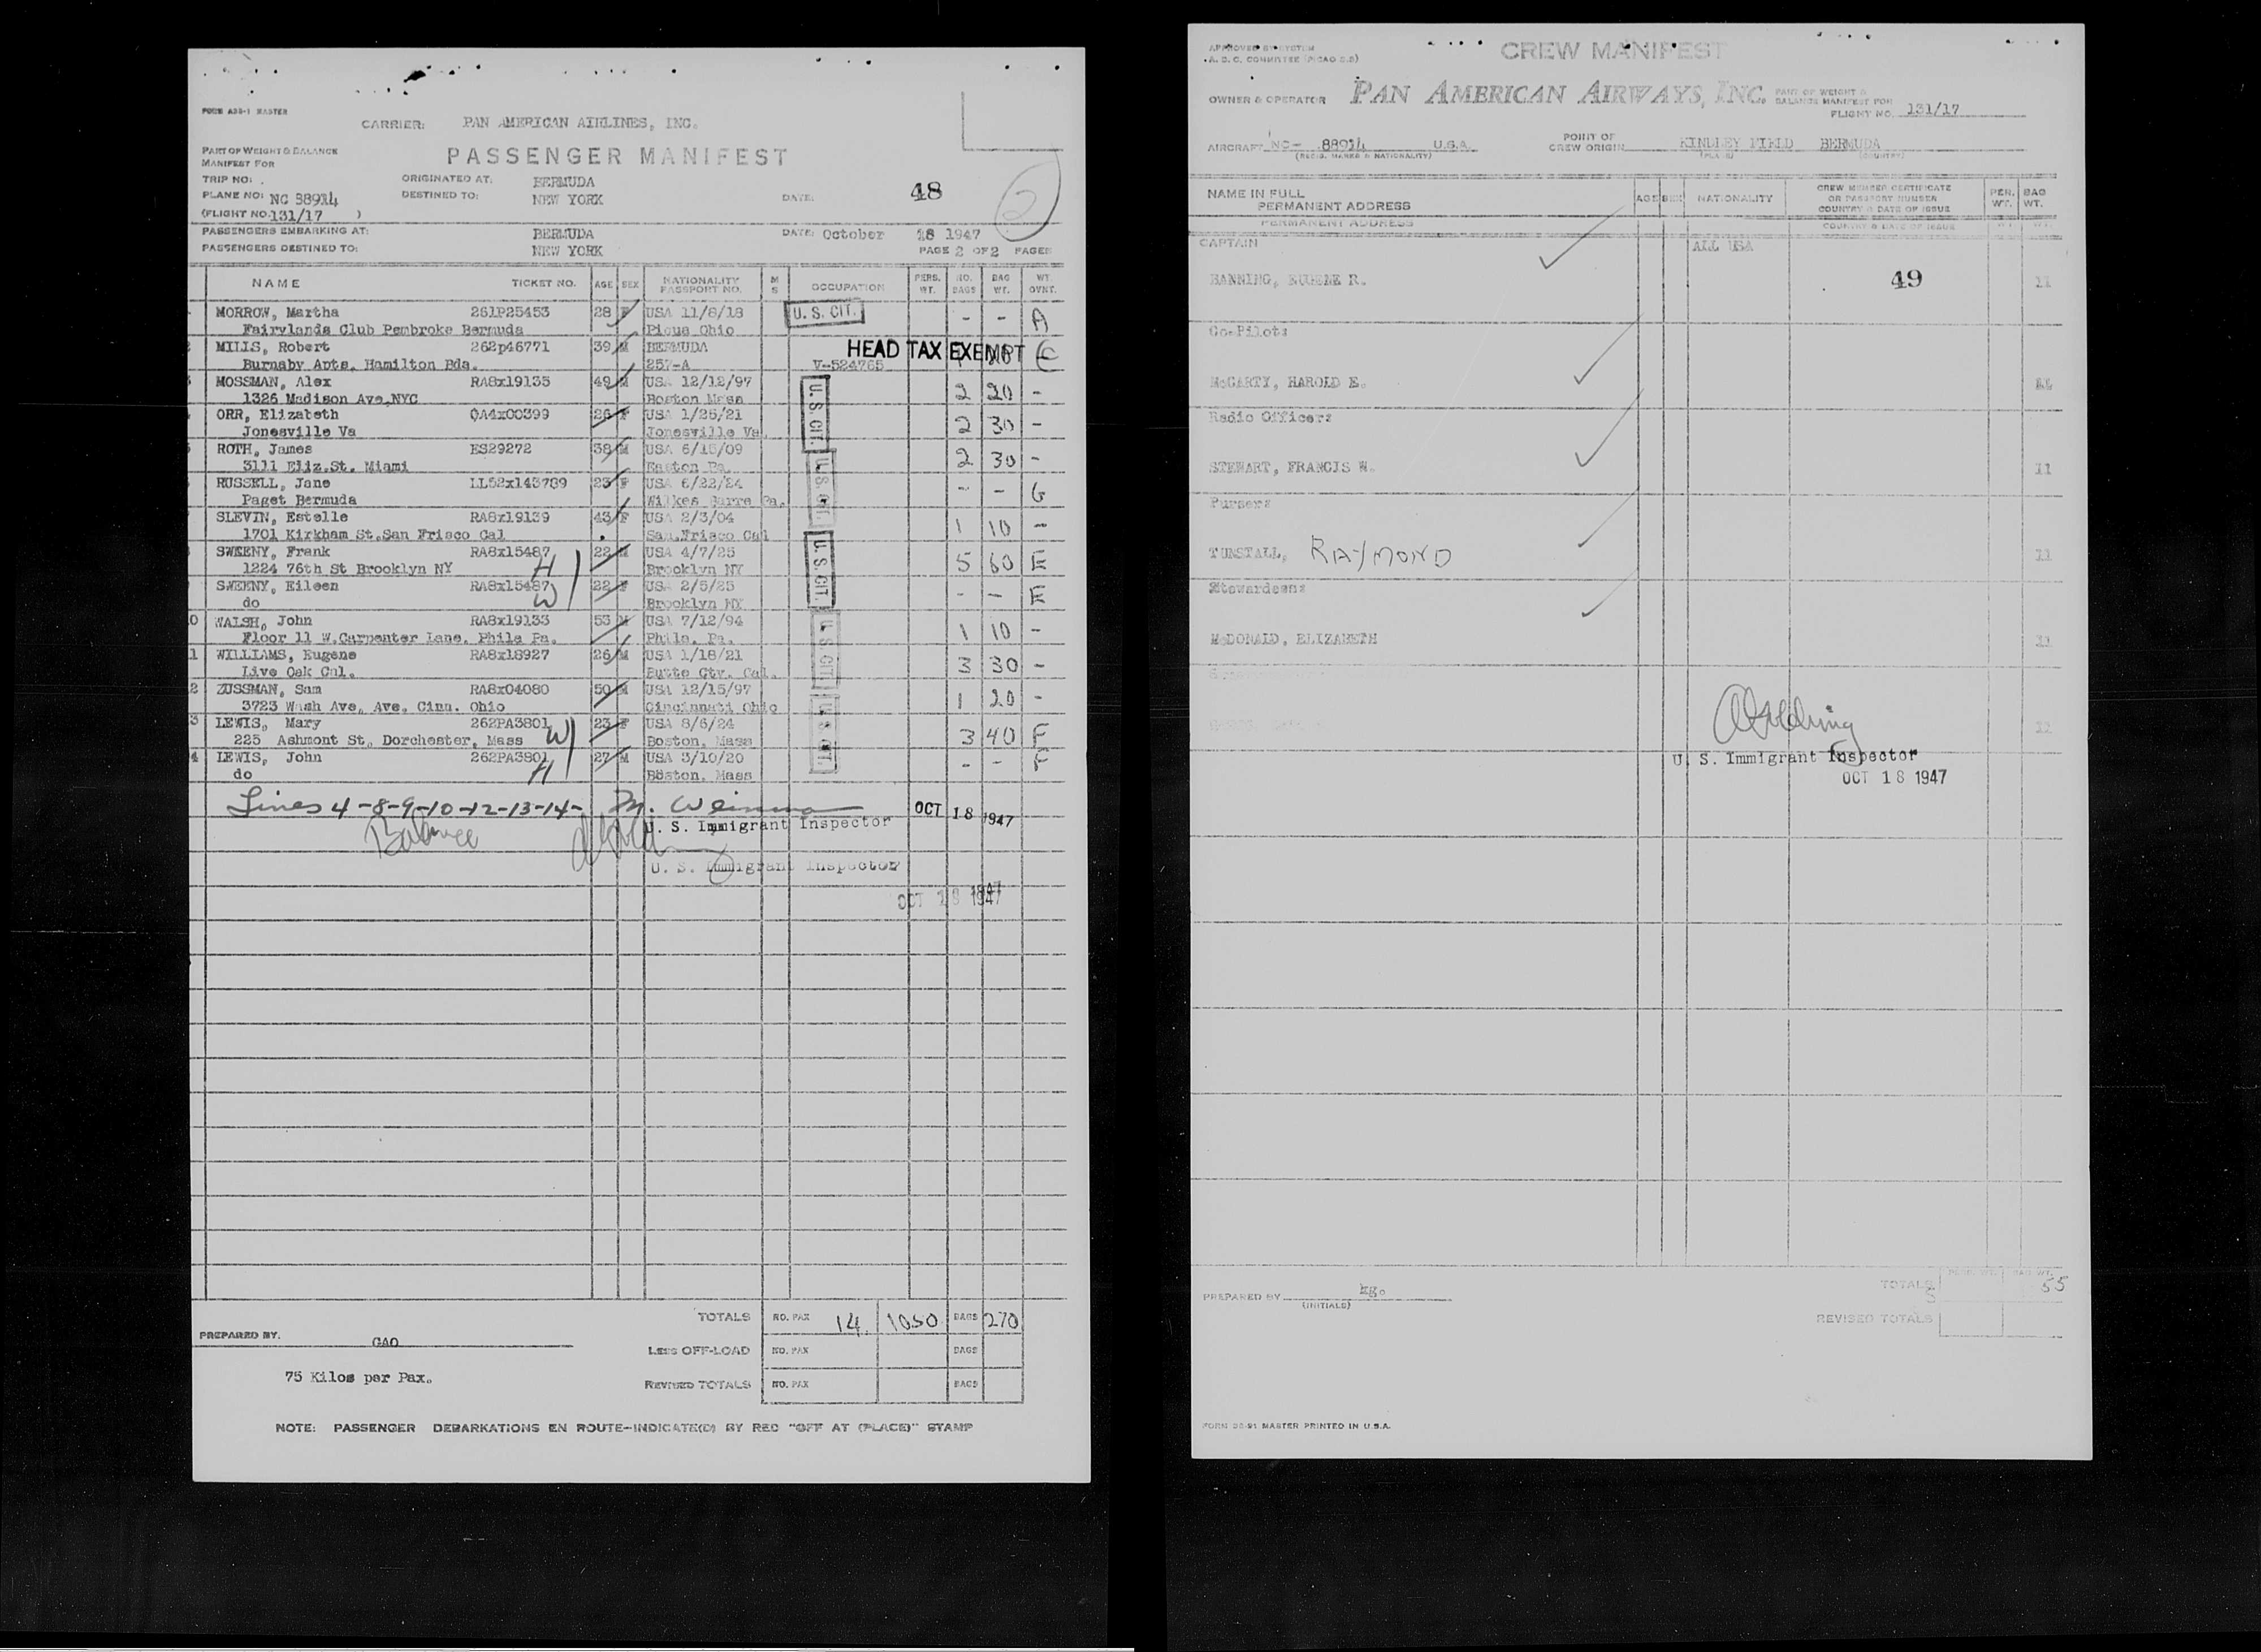 FORM A38-1 MASTER
CARRIER: PAN AMERICAN AIRLINES, INC.
PART OF WEIGHT & BALANCE
MANIFEST FOR
PASSENGER MANIFEST
TRIP NO: ORIGINATED AT: BERMUDA
PLANE NO: NC 88914 DESTINED TO: NEW YORK DATE: 48
(FLIGHT NO. 131/17 )
PASSENGERS EMBARKING AT: BERMUDA DATE: October 18 1947
PASSENGERS DESTINED TO: NEW YORK PAGE 2 OF 2 PAGES
NAME TICKET NO. AGE SEX NATIONALITY PASSPORT NO. M S OCCUPATION PERS. WT. NO. BAGS BAG WT. WT OVNT.
MORROW, Martha 261P25453 28 F USA 11/8/18 U. S. CIT. - - A
Fairylands Club Pembroke Bermuda Picua Ohio
MILLS, Robert 262p46771 39 M BERMUDA HEAD TAX EXEMPT C
Burnaby Apts. Hamilton Bda. 257-A V-524765
MOSSMAN, Alex RA8x19135 49 M USA 12/12/97 2 20 -
1326 Madison Ave,NYC Boston Mass
ORR, Elizabeth QA4x00399 26 F USA 1/25/21 U. S. CIT. 2 30 -
Jonesville Va Jonesville Va.
ROTH, James ES29272 38 M USA 6/15/09 2 30 -
3111 Eliz.St. Miami Easton Pa.
RUSSELL, Jane LL52x143789 23 F USA 6/22/24 U. S. CIT. - - G
Paget Bermuda Wilkes Barre Pa.
SLEVIN, Estelle RA8x19139 43 F USA 2/3/04 1 10 -
1701 Kirkham St.San Frisco Cal San.Frisco Cal
SWEENY, Frank RA8x15487 22 M USA 4/7/25 U. S. CIT. 5 60 E
1224 76th St Brooklyn NY H Brooklyn NY
SWEENY, Eileen RA8x15487 22 F USA 2/5/25 - - E
do W Brooklyn NY
0 WALSH, John RA8x19133 53 M USA 7/12/94 U. S. CIT. 1 10 -
Floor 11 W.Carpenter Lane. Phila Pa. Phila. Pa.
1 WILLIAMS, Eugene RA8x18927 26 M USA 1/18/21 3 30 -
Live Oak Cal. Butte Cty. Cal.
2 ZUSSMAN, Sam RA8x04080 50 M USA 12/15/97 1 20 -
3723 Wash Ave. Ave. Cinn. Ohio Cincinnati Ohio
3 LEWIS, Mary 262PA3801 23 F USA 8/6/24 U. S. CIT. 3 40 F
225 Ashmont St. Dorchester, Mass W Boston, Mass
4 LEWIS, John 262PA3801 27 M USA 3/10/20 - - F
do H Boston, Mass
Lines 4-8-9-10-12-13-14- OCT 18 1947
Balance U. S. Immigrant Inspector
U. S. Immigrant Inspector
OCT 18 1947
TOTALS NO. PAX 14 1050 BAGS 270
PREPARED BY. GAO
LESS OFF-LOAD NO. PAX BAGS
75 Kilos per Pax.
REVISED TOTALS NO. PAX BAGS
NOTE: PASSENGER DEBARKATIONS EN ROUTE-INDICATE(D) BY RED "OFF AT (PLACE)" STAMP
APPROVED BY SYSTEM
A. S. C. COMMITTEE
CREW MANIFEST
OWNER & OPERATOR PAN AMERICAN AIRWAYS, INC. PART OF WEIGHT & BALANCE MANIFEST FOR
FLIGHT NO. 131/17
AIRCRAFT NC- 88914 U.S.A. POINT OF CREW ORIGIN KINDLEY FIELD BERMUDA
(REG'D. MARKS & NATIONALITY) (PLACE) (COUNTRY)
NAME IN FULL
PERMANENT ADDRESS AGE SEX NATIONALITY CREW MEMBER CERTIFICATE OR PASSPORT NUMBER COUNTRY & DATE OF ISSUE PER. WT. BAG WT.
PERMANENT ADDRESS COUNTRY & DATE OF ISSUE
CAPTAIN ALL USA
BANNING, EUGENE R. 49 11
Co-Pilot:
McCARTY, HAROLD E. 11
Radio Officer:
STEWART, FRANCIS W. 11
Purser:
TUNSTALL, RAYMOND 11
Stewardess:
McDONALD, ELIZABETH 11
U. S. Immigrant Inspector
OCT 18 1947
TOTALS 55
PREPARED BY
(INITIALS)
REVISED TOTALS
MASTER PRINTED IN U.S.A.